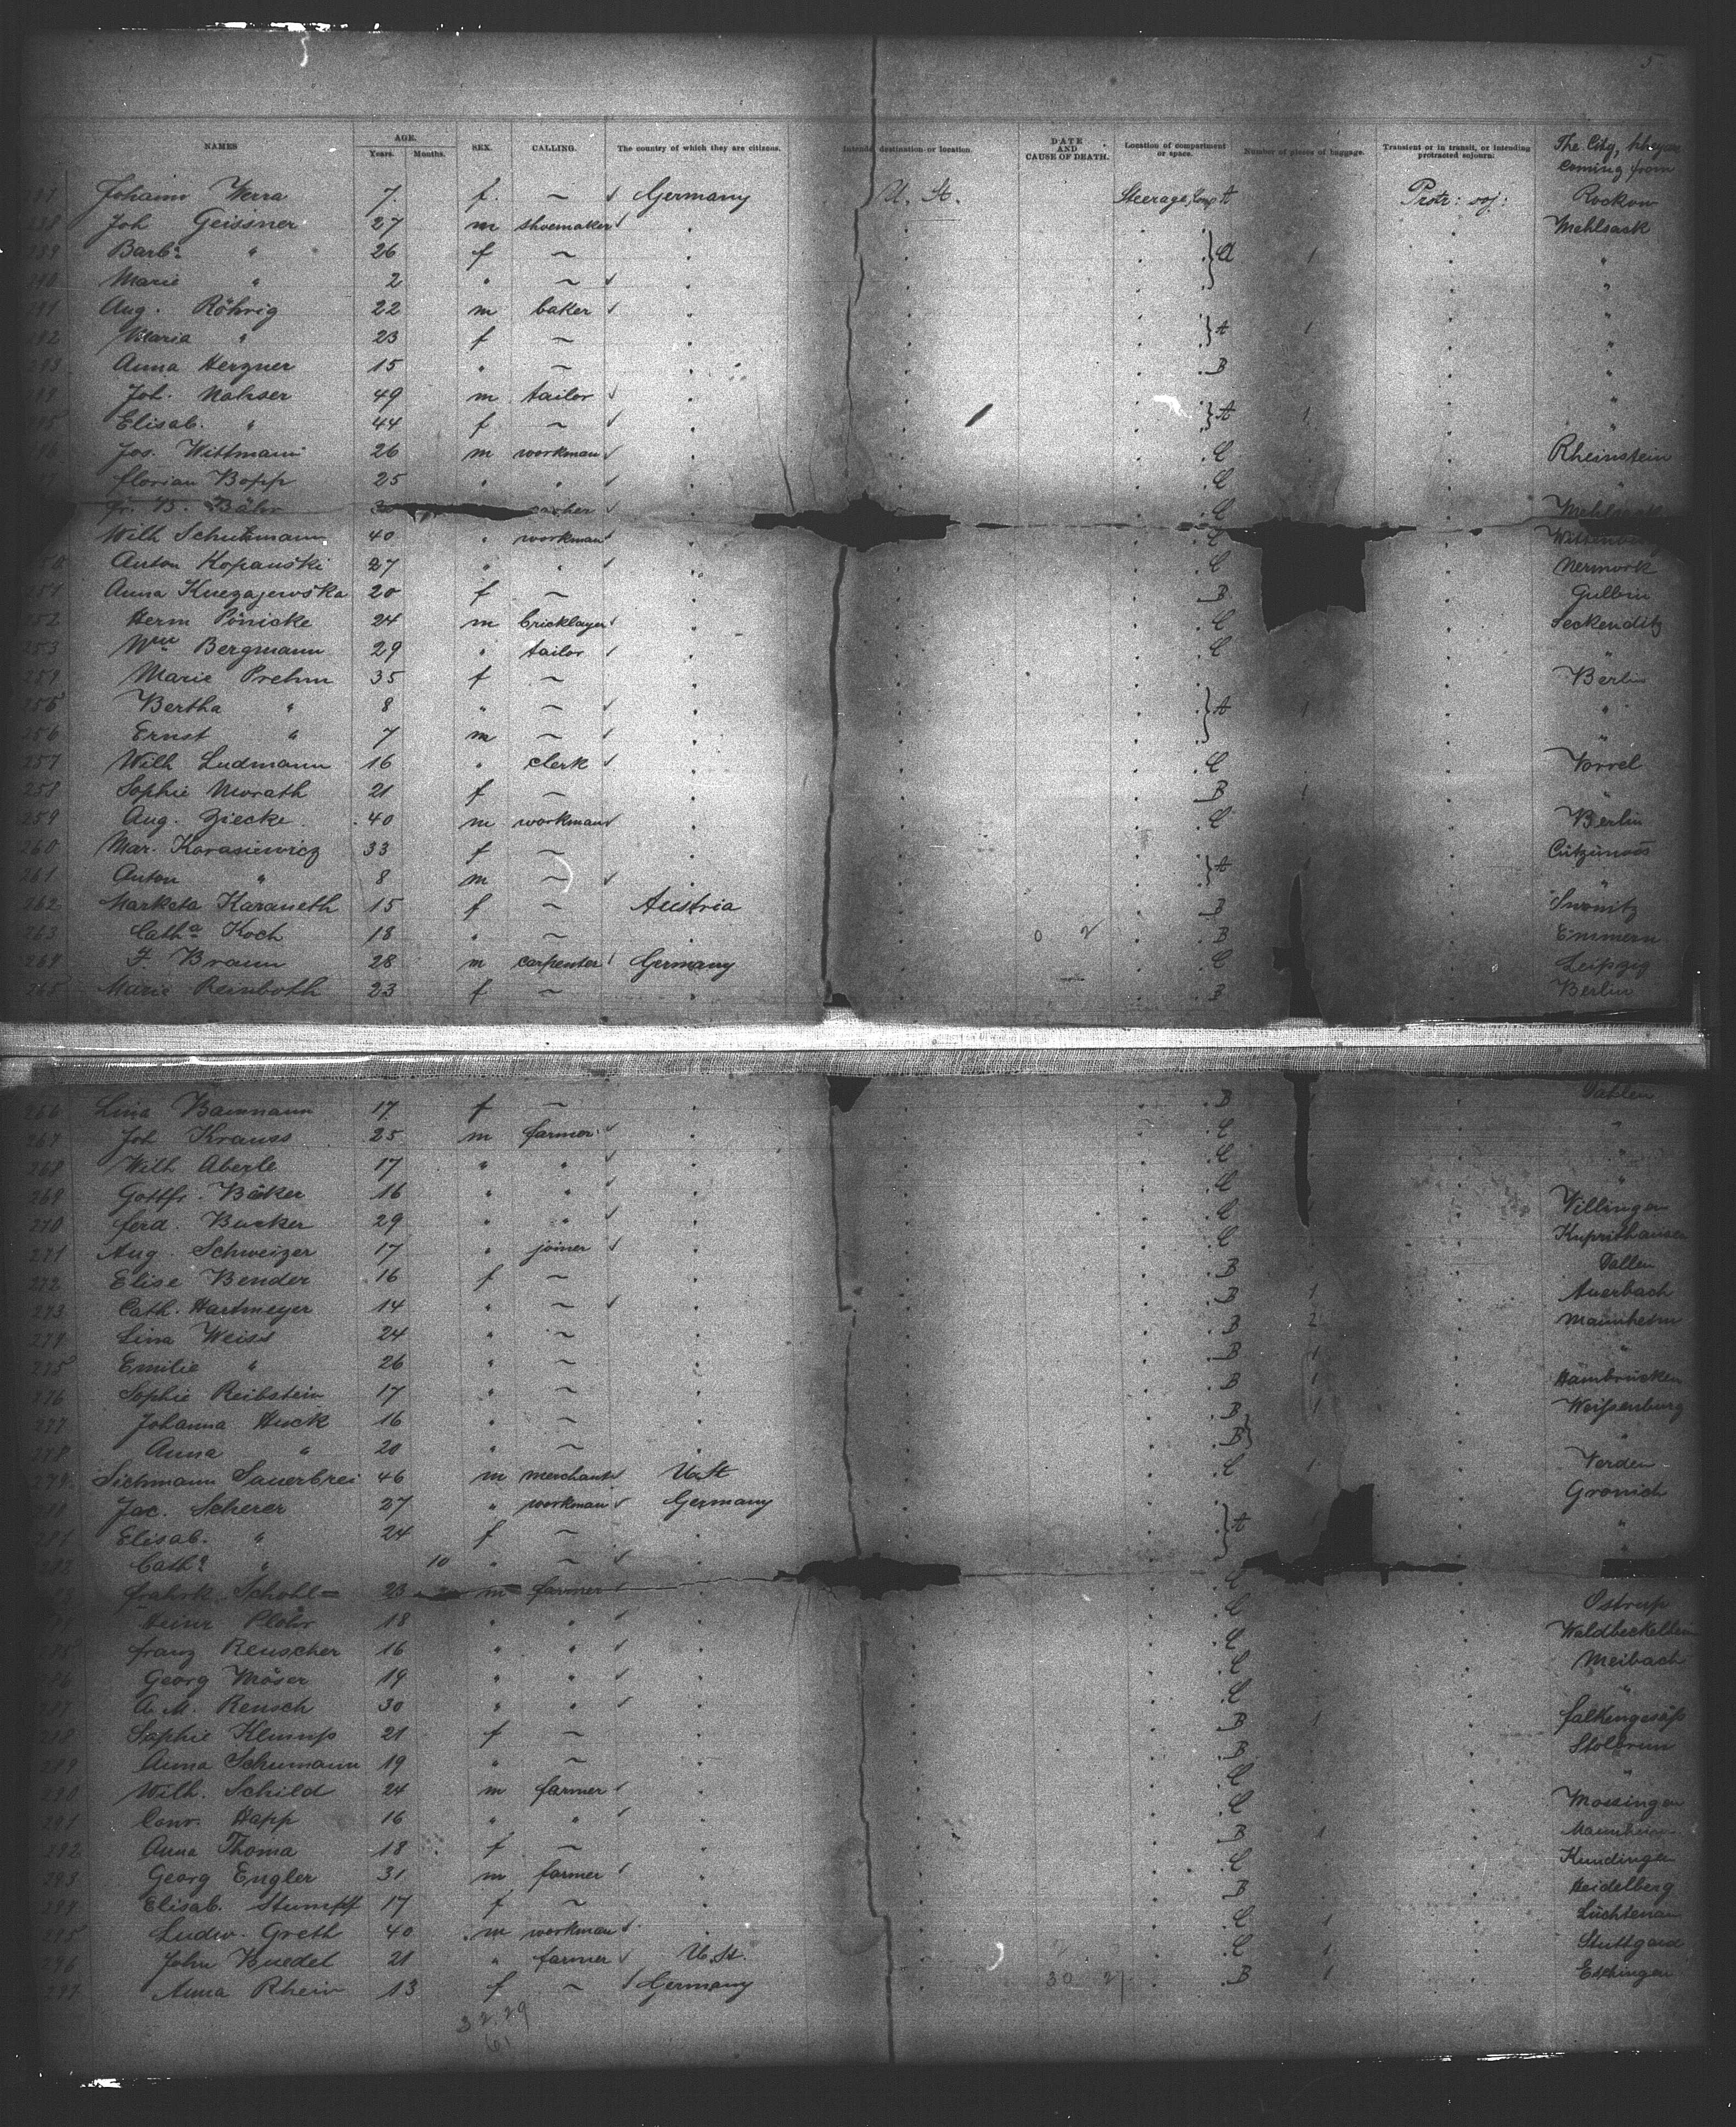 5
NAMES AGE. Years. Months. SEX. CALLING. The country of which they are citizens. Intended destination or location. DATE AND CAUSE OF DEATH. Location of compartment or space. Number of pieces of baggage. Transient or in transit, or intending protracted sojourn. The City, they are coming from
Johann Werra 7 f. ~ Germany U. St. Steerage, Comp A Protr: soj: Rockow
238 Joh Geissner 27 m shoemaker Mehlsack
239 Barb. " 26 f ~ A 1 "
240 Marie " 2 " ~ "
241 Aug. Röhrig 22 m baker "
242 Maria " 23 f ~ A 1 "
243 Anna Hergner 15 " ~ B "
244 Joh. Nahser 49 m tailor "
245 Elisab. " 44 f ~ A 1 "
Jos. Wittmann 26 m workman C Rheinstein
Florian Bopp 25 " " C "
Fr. W. Bähr C
Wilh Schuhmann 40 " workman C
250 Anton Kopanski 27 " " C Nermork
251 Anna Knegajewska 20 f ~ B Gullbin
252 Herm Pönicke 24 m bricklayer C Seckenditz
253 Wm Bergmann 29 " tailor C "
254 Marie Prehm 35 f ~ Berlin
255 Bertha " 8 " ~ A 1 "
256 Ernst " 7 m ~ "
257 Wilh Ludmann 16 " clerk C Vorrel
258 Sophie Morath 21 f ~ B 1 "
259 Aug. Ziecke 40 m workman C Berlin
260 Mar. Karasiewicz 33 f ~
261 Anton " 8 m ~ A "
262 Marketa Karaneth 15 f ~ Austria B
263 Catha Koch 18 " ~ 0 2 B Emmern
264 F. Braun 28 m carpenter Germany C Leipzig
265 Marie Reinboth 23 f ~ B Berlin
266 Lina Baumann 17 f ~ B Dahlen
267 Joh Krauss 25 m farmer C "
268 Wilh Aberle 17 " " C "
269 Gottfr. Bäker 16 " " C "
270 Ferd. Bucker 29 " " C Villingen
271 Aug. Schweizer 17 " joiner C Kuprithausen
272 Elise Bender 16 f ~ B Dallen
273 Cath. Hartmeyer 14 " ~ B 1 Auerbach
274 Lina Weiss 24 " ~ B 2 Mannheim
275 Emilie " 26 " ~ B 1 "
276 Sophie Reibstein 17 " ~ B 1 Hambrücken
277 Johanna Huck 16 " ~ B 1 Weißenburg
278 Anna " 20 " ~ B "
279 Sichmann Sauerbrei 46 m merchant U. St C 1 Verden
280 Jac. Scherer 27 " workman Germany Gronich
281 Elisab. " 24 f ~ A "
282 Cath. " 10 " ~ "
283 Scholl 23 m farmer C
284 Heinr Plöhr 18 " " C Ostrup
285 Franz Reuscher 16 " " C Waldbeckelheim
286 Georg Möser 19 " " C Meibach
287 A. M. Rensch 30 " " C "
288 Sophie Klumpp 21 f ~ B 1 Falkengesäß
289 Anna Schumann 19 " ~ B
290 Wilh. Schild 24 m farmer C "
291 Conr. Happ 16 " " C Mössingen
292 Anna Thoma 18 f ~ B 1 Mannheim
293 Georg Engler 31 m farmer C Kundingen
294 Elisab. Stumpff 17 f ~ B Heidelberg
295 Ludw. Greth 40 m workman C 1 Lüchtenau
296 John Knedel 21 " farmer U. St. C 1 Stuttgard
297 Anna Rhein 13 f ~ Germany 30 27 B 1 Eschingen
32.29
61